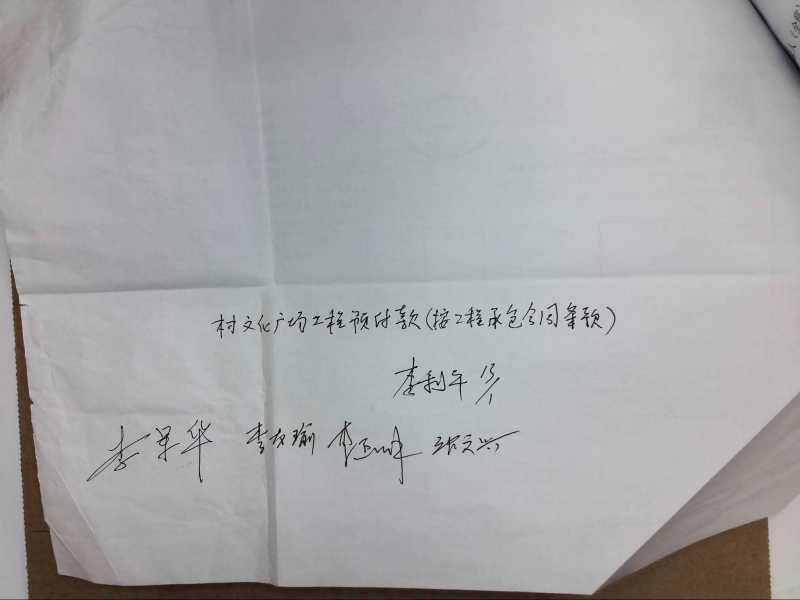 村文化广场工程预付款(按工程承包合同条款)
李利年 15/1
李军华 李友瑜 李 张文兴